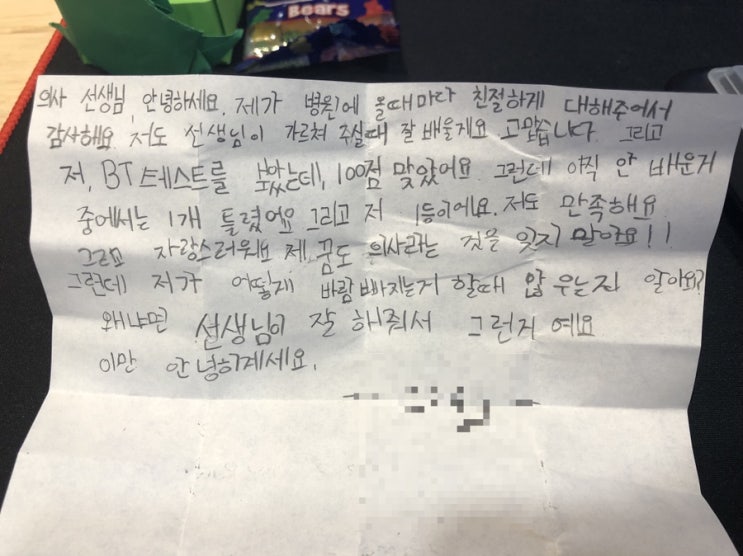 Bears
의사 선생님, 안녕하세요. 제가 병원에 올때마다 친절하게 대해주어서
감사해요. 저도 선생님이 가르쳐 주실때 잘 배울게요 고맙습니다. 그리고
저, BT테스트를 보았는데, 100점 맞았어요. 그런데 아직 안 배운거
중에서는 1개 틀렸어요 그리고 저 1등이에요. 저도 만족해요
자랑스러워요 제 꿈도 의사라는 것을 잊지 말아요!!
그런데 저가 어떻게 바람 빠지는거 할때 않 우는지 알아요?
왜냐면 선생님이 잘 해줘서 그런거 예요
이만 안녕히계세요.